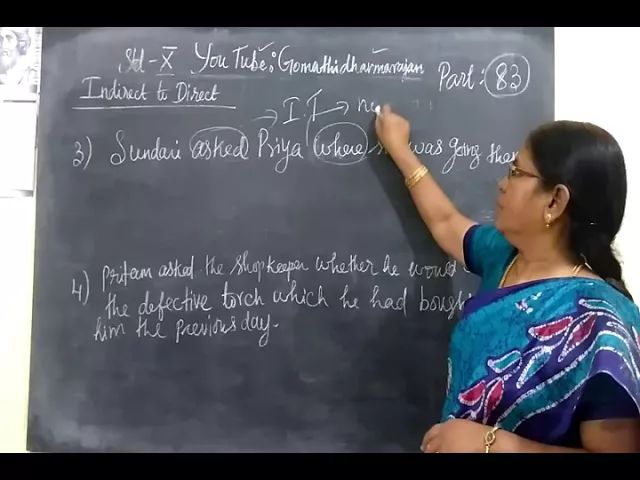 Std - X YouTube: Gomathidharmarajan Part: 83
Indirect to Direct
→ I.T →
3) Sundari asked Priya where she was going then
4) Pritam asked the shopkeeper whether he would
the defective torch which he had bought
him the previous day.